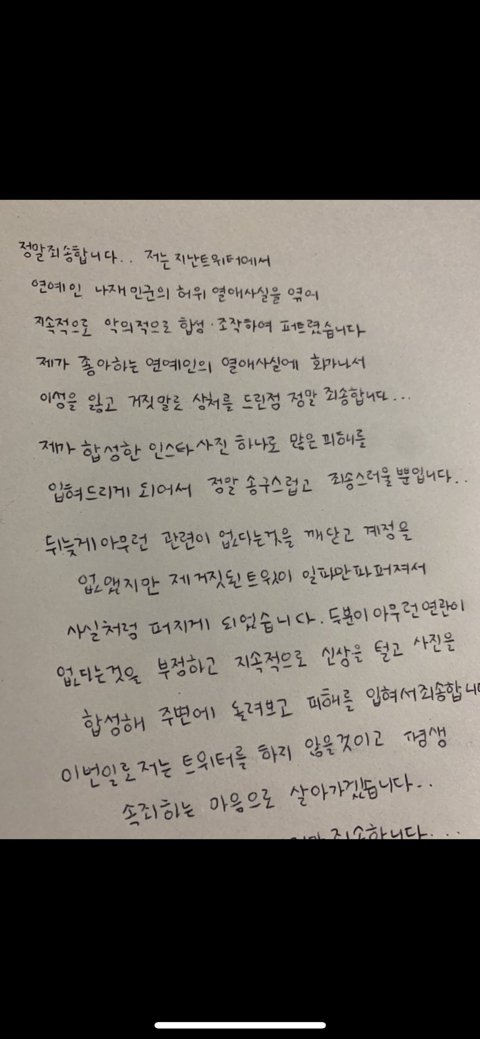 정말죄송합니다.. 저는 지난트위터에서
연예인 나재민군의 허위 열애사실을 엮어
지속적으로 악의적으로 합성·조작하여 퍼트렸습니다
제가 좋아하는 연예인의 열애사실에 화가나서
이성을 잃고 거짓말로 상처를 드린점 정말 죄송합니다...
제가 합성한 인스타 사진 하나로 많은 피해를
입혀드리게 되어서 정말 송구스럽고 죄송스러울뿐입니다..
뒤늦게 아무런 관련이 없다는것을 깨닫고 계정을
없앴지만 제 거짓된 트윗이 일파만파 퍼져서
사실처럼 퍼지게 되었습니다. 두분이 아무런 연관이
없다는것을 부정하고 지속적으로 신상을 털고 사진을
합성해 주변에 돌려보고 피해를 입혀서 죄송합니다
이번일로 저는 트위터를 하지 않을것이고 평생
속죄하는 마음으로 살아가겠습니다..
죄송합니다...